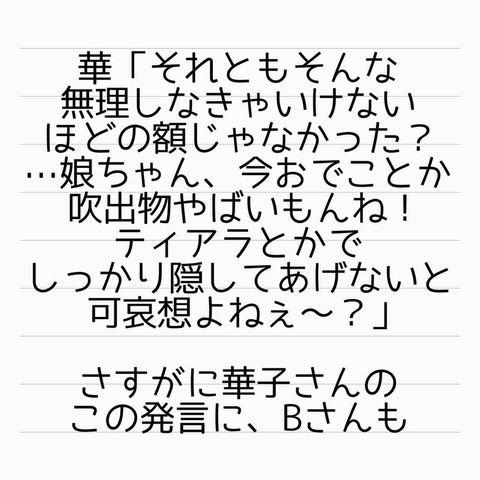 華「それともそんな
無理しなきゃいけない
ほどの額じゃなかった？
…娘ちゃん、今おでことか
吹出物やばいもんね！
ティアラとかで
しっかり隠してあげないと
可哀想よねぇ〜？」
さすがに華子さんの
この発言に、Bさんも